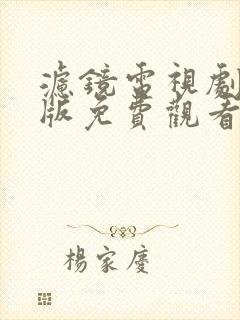 濾鏡電視劇
版免費觀看
楊家慶